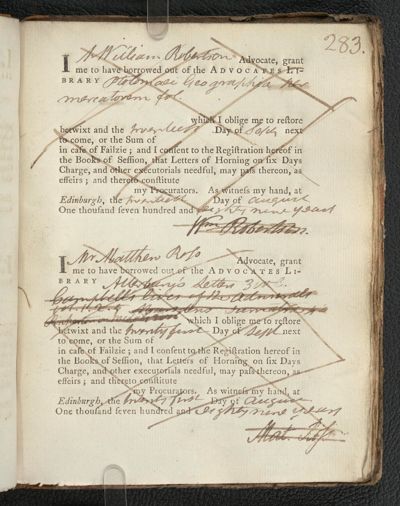 283.
I Mr William Robertson Advocate, grant
me to have borrowed out of the ADVOCATES LI-
BRARY Ptolomaei Geographia per
mercatorem fol.
which I oblige me to reſtore
betwixt and the twentieth Day of Sepr next
to come, or the Sum of
in caſe of Failzie; and I conſent to the Regiſtration hereof in
the Books of Seſſion, that Letters of Horning on ſix Days
Charge, and other executorials needful, may paſs thereon, as
effeirs; and thereto conſtitute
my Procurators. As witneſs my hand, at
Edinburgh, the twentieth Day of august
One thouſand ſeven hundred and eighty nine years
Wm Robertson.
I Mr Matthew Ross Advocate, grant
me to have borrowed out of the ADVOCATES LI-
BRARY Atterbury's Letters 3 v.
Campbells lives of the Admirals
which I oblige me to reſtore
betwixt and the twenty first Day of Sept next
to come, or the Sum of
in caſe of Failzie; and I conſent to the Regiſtration hereof in
the Books of Seſſion, that Letters of Horning on ſix Days
Charge, and other executorials needful, may paſs thereon, as
effeirs; and thereto conſtitute
my Procurators. As witneſs my hand, at
Edinburgh, the twenty first Day of august
One thouſand ſeven hundred and eighty nine years
Mat. Ross